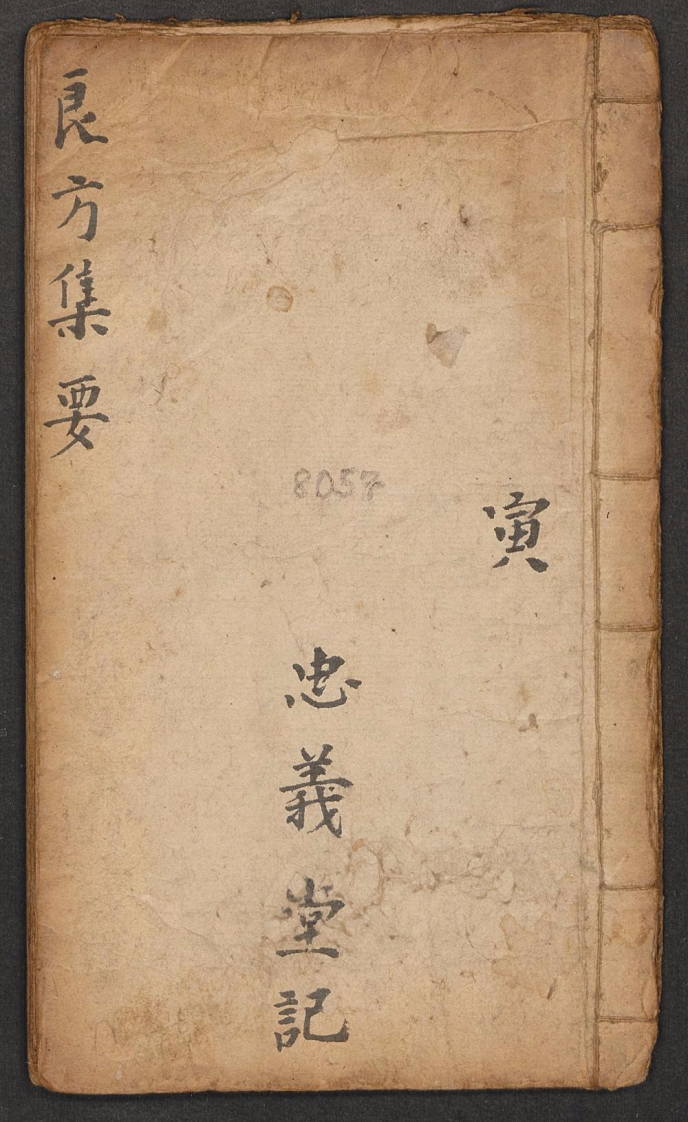 寅
忠義堂記
8057
良方集要